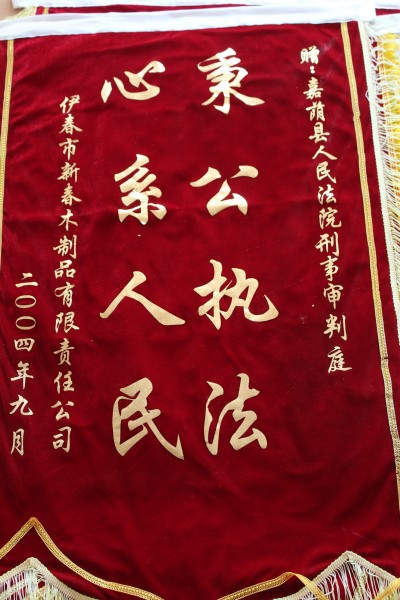 赠：嘉荫县人民法院刑事审判庭
秉公执法
心系人民
伊春市新春木制品有限责任公司
二〇〇四年九月